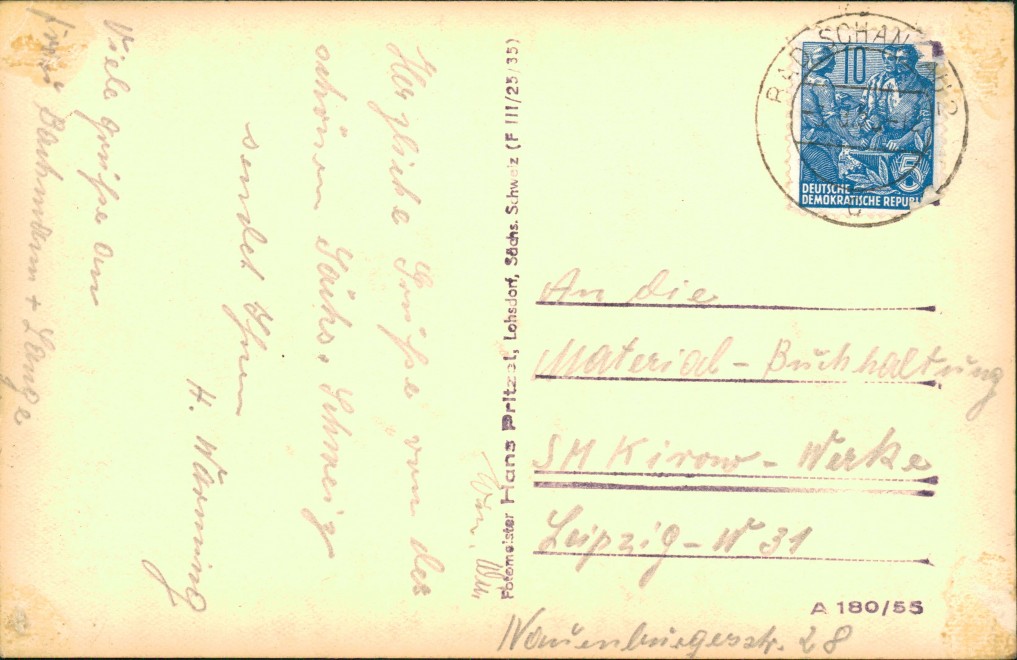 Herzliche Grüße von der
schönen Sächs. Schweiz
sendet Ihnen
H. Warming
Viele Grüße an
Frau Bachmann + Lange
Fotomeister Hans Pritzel, Lohsdorf, Sächs. Schweiz (F III/25/35)
BAD SCHANDAU
10
5
DEUTSCHE
DEMOKRATISCHE REPUBL
An die
Material-Buchhaltung
SM Kirow-Werke
Leipzig-W 31
A 180/55
Nauenburgerstr. 28